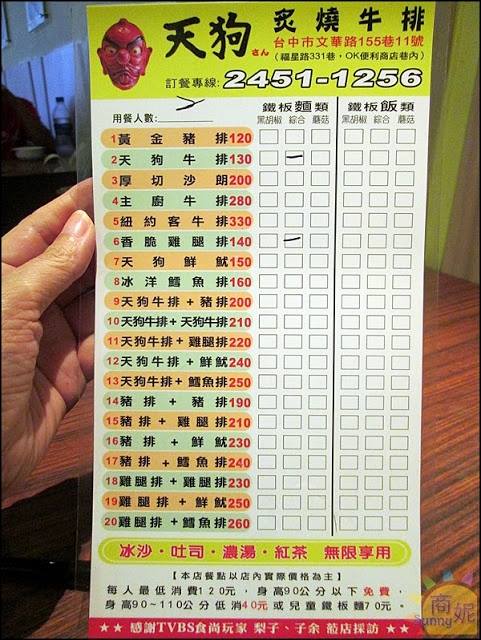 天狗さん 炙燒牛排
台中市文華路155巷11號
(福星路331巷，OK便利商店巷內)
訂餐專線: 2451-1256
用餐人數:
鐵板麵類 鐵板飯類
黑胡椒 綜合 蘑菇 黑胡椒 綜合 蘑菇
1 黃金豬排 120
2 天狗牛排 130
3 厚切沙朗 200
4 主廚牛排 280
5 紐約客牛排 330
6 香脆雞腿排 140
7 天狗鮮魷 150
8 冰洋鱈魚排 160
9 天狗牛排+豬排 200
10 天狗牛排+天狗牛排 210
11 天狗牛排+雞腿排 220
12 天狗牛排+鮮魷 240
13 天狗牛排+鱈魚排 250
14 豬排+豬排 190
15 豬排+雞腿排 210
16 豬排+鮮魷 230
17 豬排+鱈魚排 240
18 雞腿排+雞腿排 230
19 雞腿排+鮮魷 250
20 雞腿排+鱈魚排 260
冰沙·吐司·濃湯·紅茶 無限享用
【本店餐點以店內實際價格為主】
每人最低消費120元，身高90公分以下免費，
身高90~110公分低消40元或兒童鐵板麵70元。
★★ 感謝TVBS食尚玩家 梨子、子余 蒞店採訪 ★★
商妮
Sunny